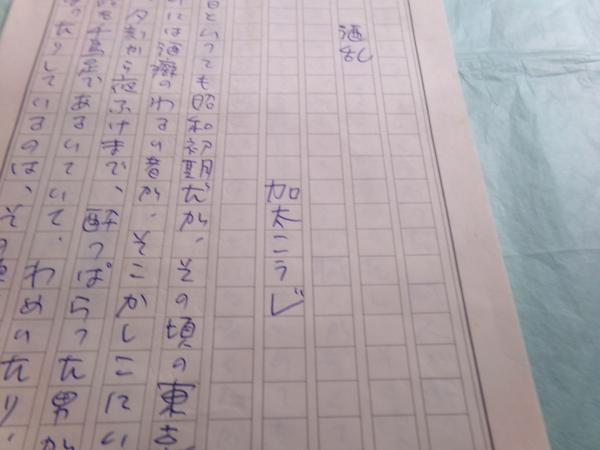 酒乱
加太こうじ
といっても昭和初期だから、その頃の東京
には酒癖のわるい者が、そこかしこにい
から夜ふけまで、酔っぱらった男が
千鳥足であるいていて、わめいたり、
たりしているのは、その